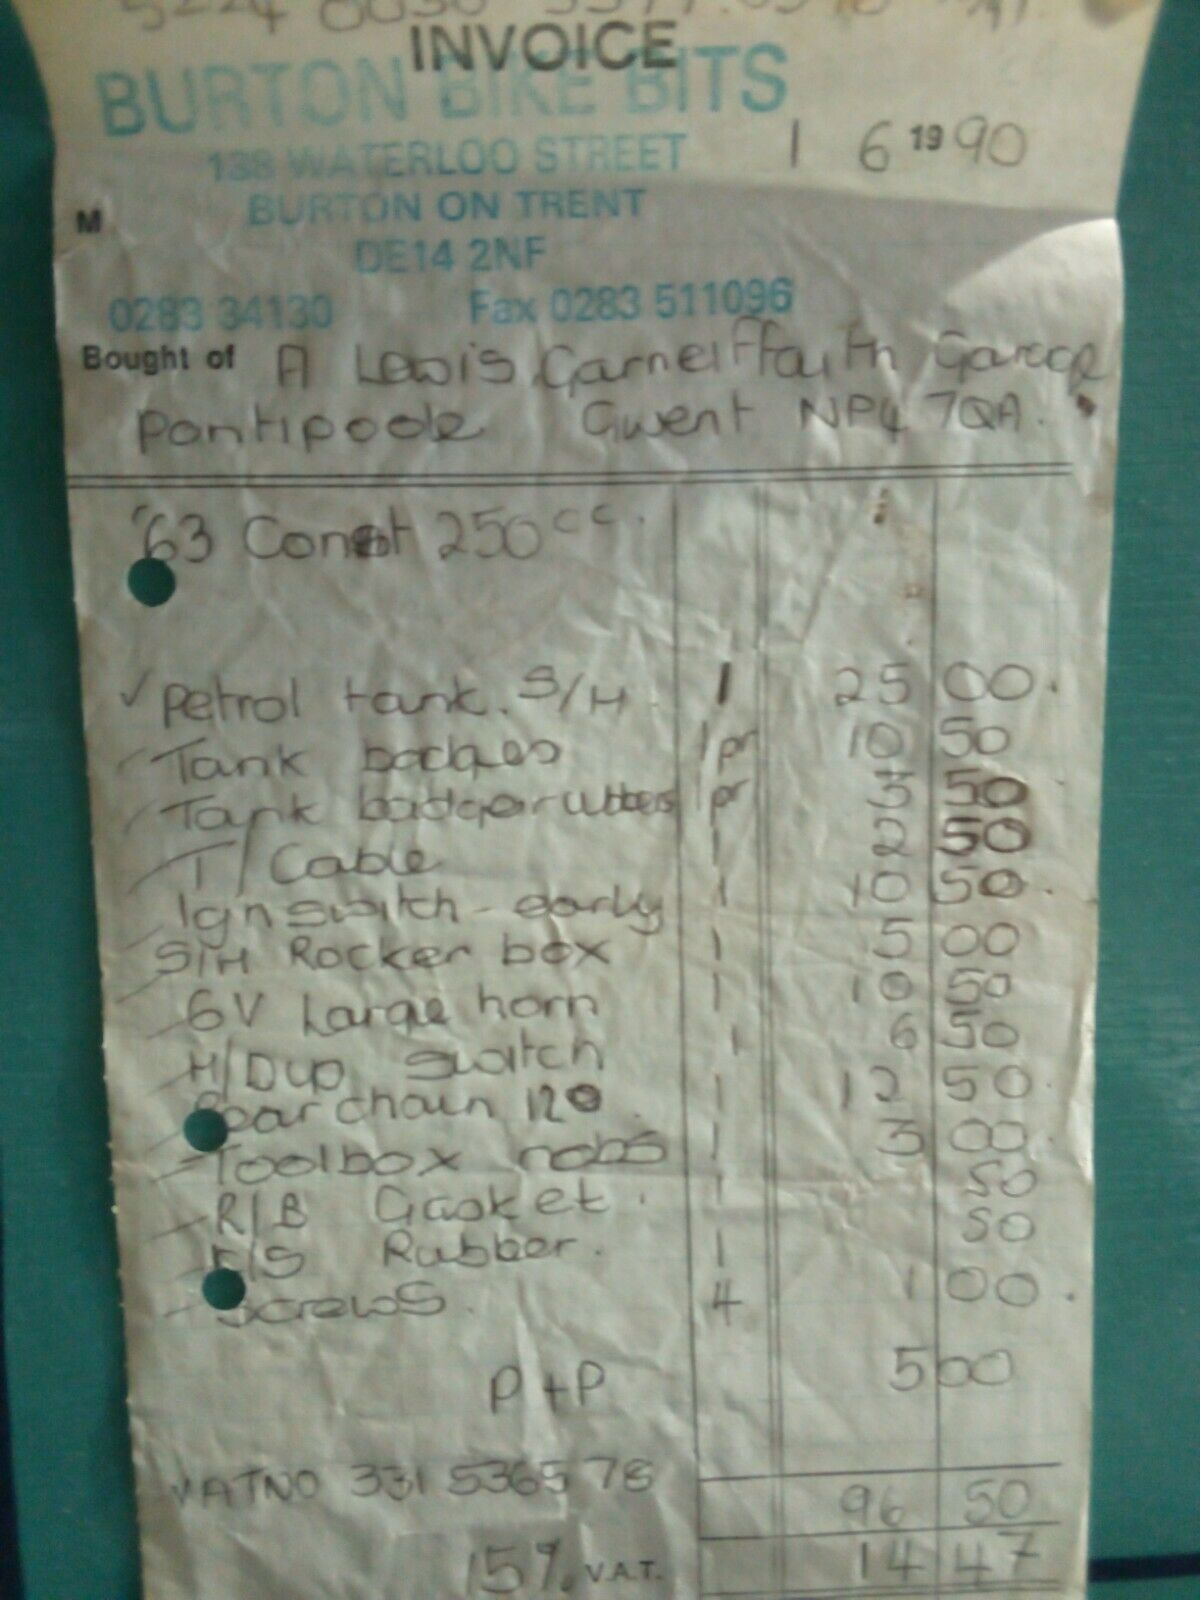 INVOICE
BURTON BIKE BITS
138 WATERLOO STREET 1 6 19 90
M BURTON ON TRENT
DE14 2NF
0283 34130 Fax 0283 511096
Bought of A Lewis Garneiffaith Garage
Pontipoole Gwent NP4 7QA.
'63 Const 250cc.
✓ Petrol tank. S/H 1 25 00.
Tank badges 1pr 10 50
Tank badge rubbers 1pr 3 50
T/Cable 1 2 50
Ign switch - early 1 10 50.
S/H Rocker box 1 5 00
6V Large horn 1 10 50
H/Dip switch 1 6 50
chain 120 1 12 50.
Toolbox nobs 1 3 00.
R/B Gasket. 1 50
Rubber. 1 50
Screws. 4 1 00.
P+P 5 00
VAT NO 331 5365 78 96 50
15% V.A.T. 14 47